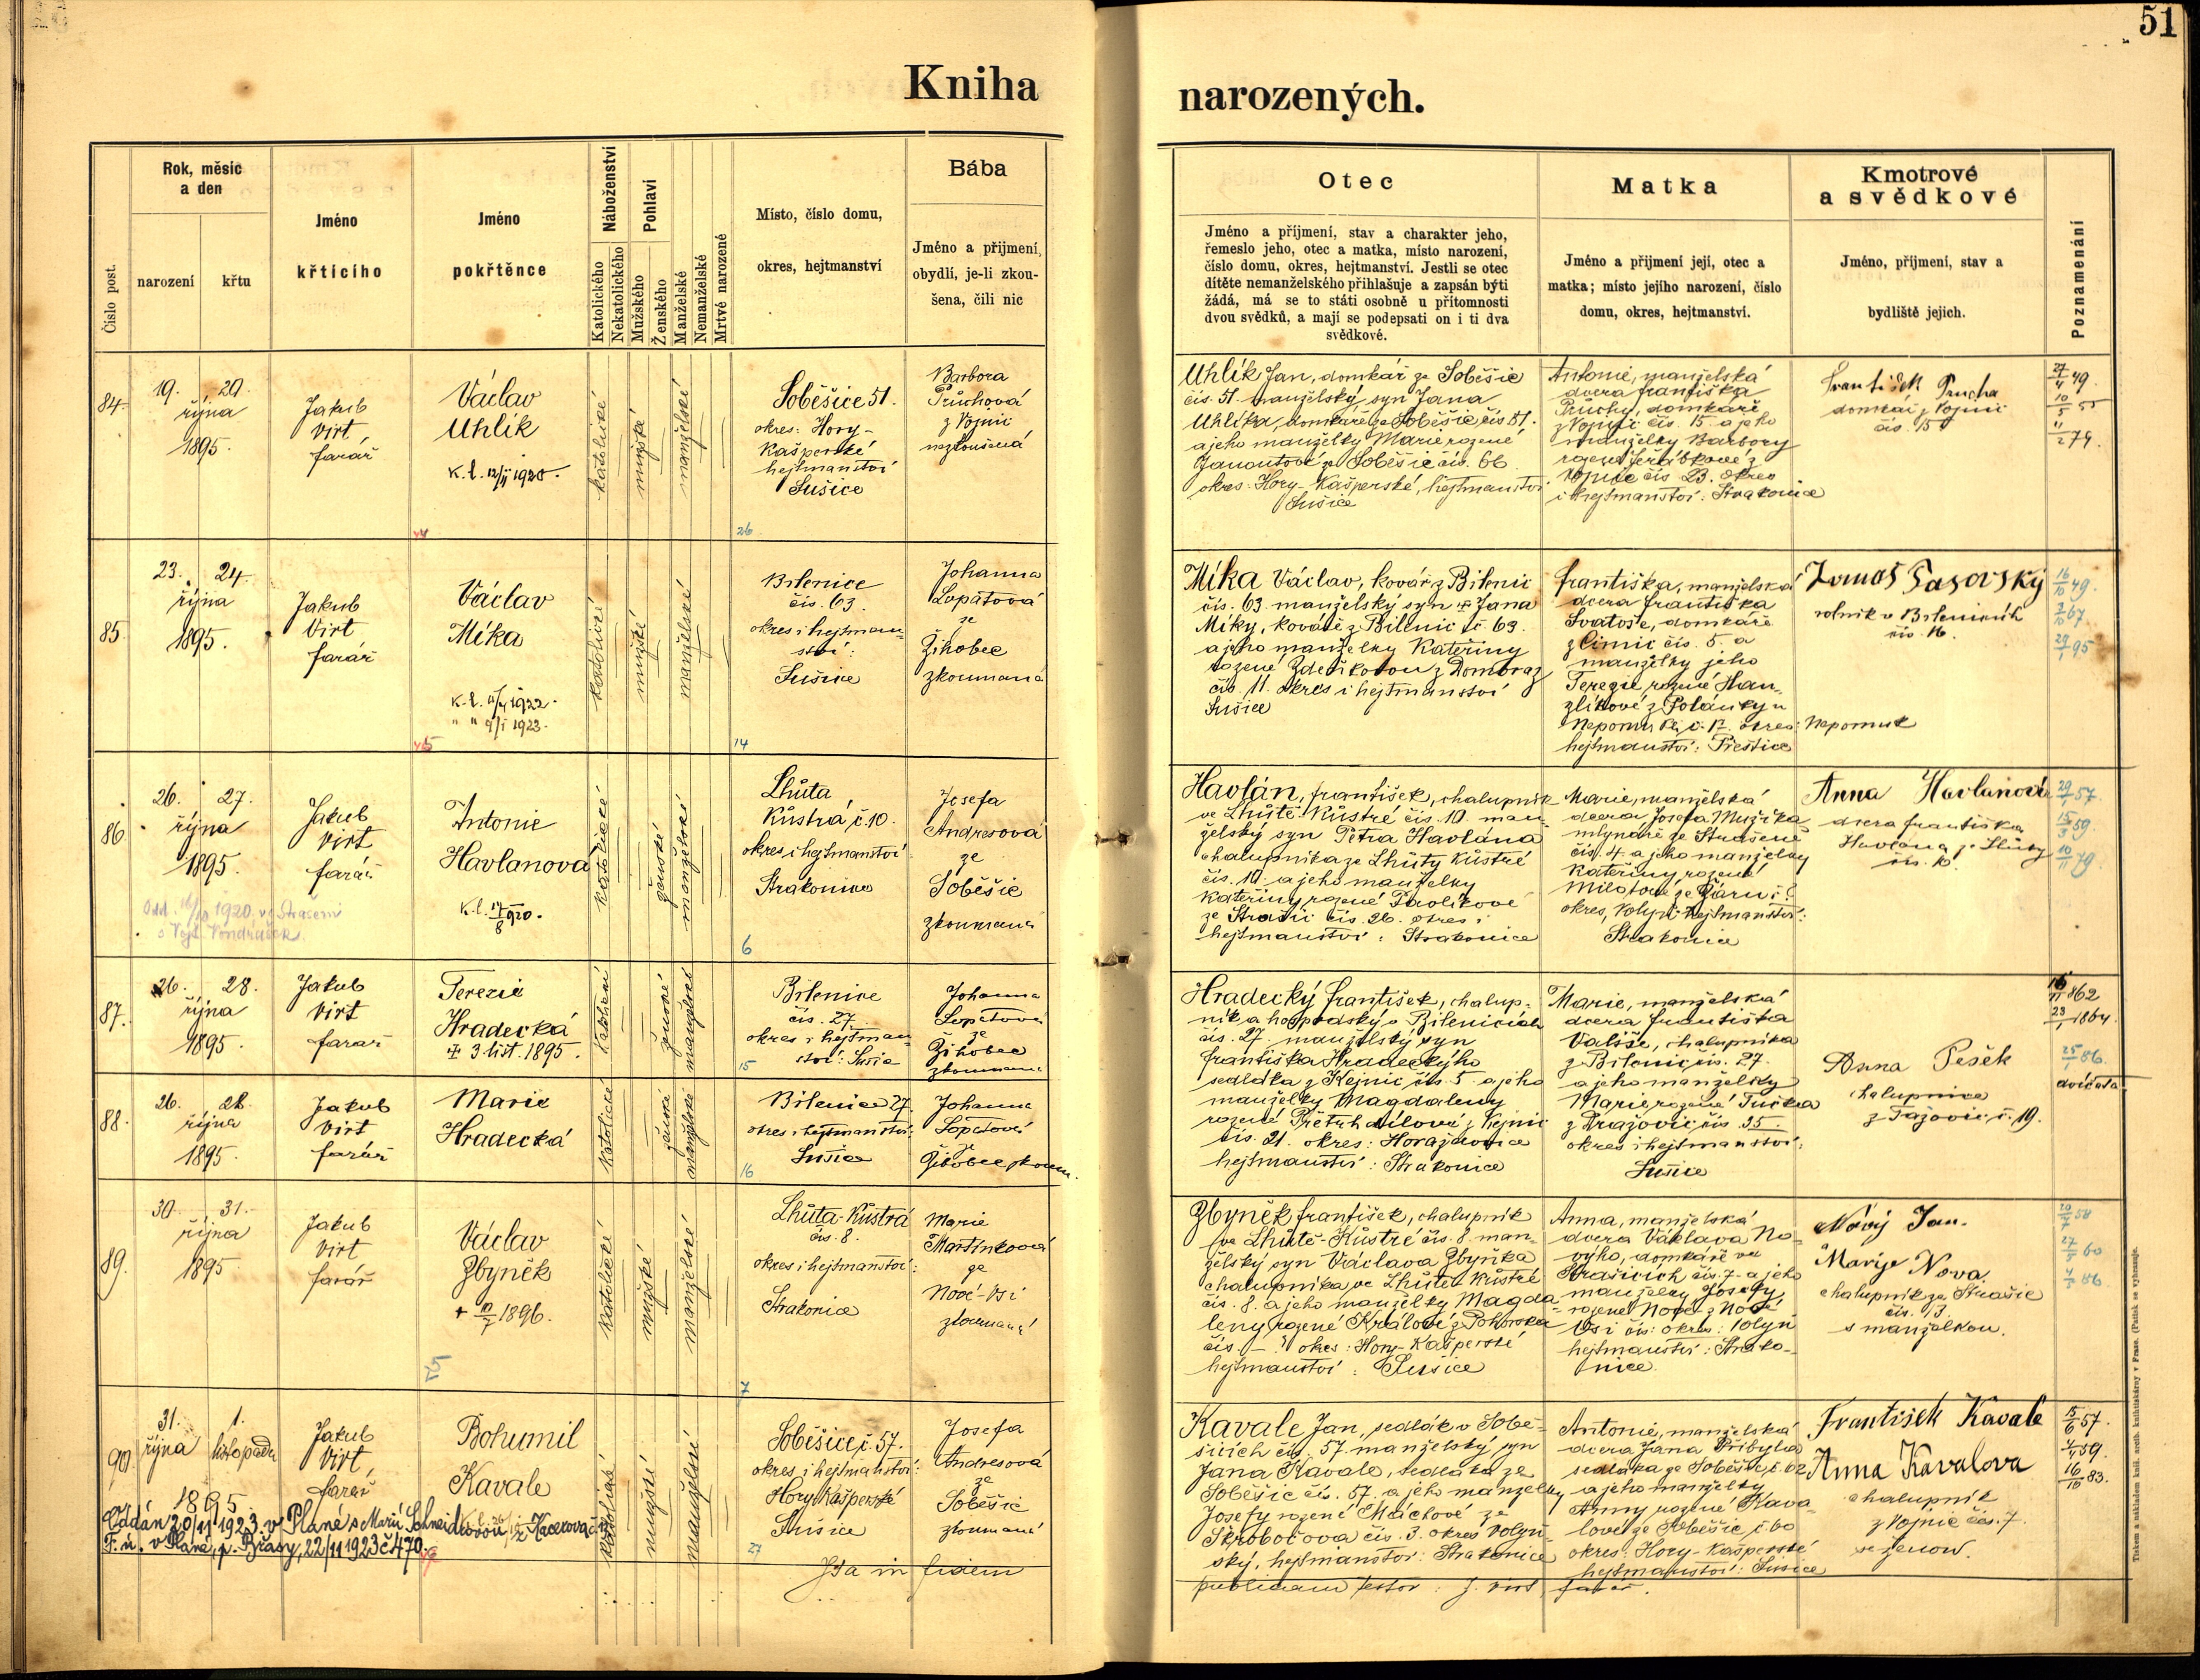 51
Kniha narozených.
Číslo post.
Rok, měsíc
a den
narození
křtu
Jméno
křtícího
Jméno
pokřtěnce
Náboženství
Katolického
Nekatolického
Pohlaví
Mužského
Ženského
Manželské
Nemanželské
Mrtvě narozené
Místo, číslo domu,
okres, hejtmanství
Bába
Jméno a příjmení,
obydlí, je-li zkou-
šena, čili nic
Otec
Jméno a příjmení, stav a charakter jeho,
řemeslo jeho, otec a matka, místo narození,
číslo domu, okres, hejtmanství. Jestli se otec
dítěte nemanželského přihlašuje a zapsán býti
žádá, má se to státi osobně u přítomnosti
dvou svědků, a mají se podepsati on i ti dva
svědkové.
Matka
Jméno a příjmení její, otec a
matka; místo jejího narození, číslo
domu, okres, hejtmanství.
Kmotrové
a svědkové
Jméno, příjmení, stav a
bydliště jejich.
Poznamenání
84.
19. 20.
října
1895.
Jakub
Virt
farář
Václav
Uhlík
katolické
mužské
manželské
Soběšice 51.
okres: Hory-
Kašperské
hejtmanství
Sušice
26
Barbora
Průchová
z Vojnic
nezkoušená
Uhlík Jan, domkář ze Soběšic
čís. 51. manželský syn Jana
Uhlíka, domkáře ze Soběšic, čís 51.
a jeho manželky Marie rozené
ze Soběšic čís. 66
okres: Hory-Kašperské, hejtmanství
Sušice
Antonie, manželská
dcera Františka
Průchy, domkáře
z Vojnic čís. 15. a jeho
manželky Barbory
rozené Jeřábkové z
Vojnic čís 23. okres
i hejtmanství: Strakonice
František Prucha
domkář z Vojnic
čís. 15
85.
23. 24.
října
1895.
Jakub
Virt
farář
Václav
Míka
katolické
mužské
manželské
Bilenice
čís. 63.
okres i hejtman-
ství:
Sušice
14
Johanna
Lopatová
ze
Žihobec
zkoumaná
Míka Václav, kovář z Bilenic
čís. 63 manželský syn Jana
Míky, kováře z Bilenic č 63.
a jeho manželky Kateřiny
rozené
čís. 11. okres i hejtmanství
Sušice
Františka, manželská
dcera Františka
Svatoše, domkáře
z Čimic čís. 5. a
manželky jeho
Terezie rozené Han-
zlíkové z Polánky u
Nepomuk
hejtmanství: Přeštice
rolník v Bilenicích
čís. 16.
86
26. 27.
října
1895.
Jakub
Virt
farář
Antonie
Havlanová
katolické
ženské
manželské
Lhůta
Kůstrá č. 10.
okres i hejtmanství
Strakonice
6
Josefa
Andresová
ze
Soběšic
zkoumaná
Havlán, František, chalupník
ve Lhůtě-Kůstré čís. 10. man-
želský syn Petra Havlána
chalupníka ze Lhůty Kůstré
čís. 10. a jeho manželky
Kateřiny, rozené Pavlíkové
ze Strašic čís. 26. okres i
hejtmanství: Strakonice
Marie, manželská
dcera Josefa Mužíka
mlynáře ze
čís. 4. a jeho manželky
Kateřiny rozené
okres, Volyň hejtmanství:
Strakonice
Anna Havlanová
dcera Františka
Havlana ze Lhůty
čís. 10
87.
26. 28.
října
1895.
Jakub
Virt
farář
Terezie
Hradecká
3 list. 1895.
katolické
ženské
manželské
Bilenice
čís. 27
okres i hejtman
ství: Sušice
15
Johanna
Lopatová
ze
Žihobec
zkoumaná
Hradecký František, chalup-
ník a hospodský v Bilenicích
čís. 27. manželský syn
Františka Hradeckýho
sedláka z Kejnic čís. 5. a jeho
manželky Magdaleny
rozené
čís. 21. okres: Horažďovice
hejtmanství: Strakonice
Marie, manželská
dcera Františka
chalupníka
z Bilenic čís. 27.
a jeho manželky
Marie rozené
z Dražovic čís 35.
okres i hejtmanství:
Sušice
Anna Pešek
chalupnice
z Tažovic, č. 19.
dvojčata
88.
26. 28.
října
1895.
Jakub
Virt
farář
Marie
Hradecká
katolické
ženské
manželské
Bilenice 27.
okres i hejtmanství:
Sušice
16
Johanna
Lopatová
ze
Žihobec zkoum.
89.
30. 31.
října
1895.
Jakub
Virt
farář
Václav
Zbyněk
katolické
mužské
manželské
Lhůta-Kůstrá
čís. 8.
okres i hejtmanství:
Strakonice
7
Marie
Martínková
ze
Nové-Vsi
zkoumaná
Zbyněk František, chalupník
ve Lhůtě Kůstré čís. 8. man-
želský syn Václava Zbyňka
chalupníka ve Lhůtě Kůstré
čís. 8. a jeho manželky Magda
leny rozené Králové z
okres: Hory-Kašperské
hejtmanství: Sušice
Anna, manželská
dcera Václava No-
výho, domkáře ve
Strašicích čís. 7. a jeho
manželky Josefy
rozené Nové z Nové
Vsi čís: okres: Volyň
hejtmanství: Strako-
nice.
Nový Jan.
Marije Nova.
chalupník ze Strašic
čís. 13.
s manželkou.
90.
31. 1.
října listopadu
1895
Jakub
Virt,
farář
Bohumil
Kavale
katolické
mužské
manželské
Soběšice č. 57.
okres i hejtmanství:
Hory Kašperské
Sušice
27
Josefa
Andresová
ze
Soběšic
zkoumaná
Oddán 20/11 1923 v Plané s Marií Schneidrovou
Kavale Jan, sedlák v Sobě-
šicích čís. 57. manželský syn
Jana Kavale, sedláka ze
Soběšic čís. 57. a jeho manželky
Josefy rozené Máchové ze
Skrobočova čís. 3. okres Volyň-
ský, hejtmanství: Strakonice
Antonie, manželská
dcera Jana Přibyla
sedláka ze Soběšic, č. 62
a jeho manželky
Anny rozené Kava
lové ze Soběšic č. 60
okres: Hory-Kašperské
hejtmanství: Sušice
František Kavale
Anna Kavalova
chalupník
z Vojnic čís. 7.
se ženou.
Ita in fidem
publicam testor: J. Virt, farář.